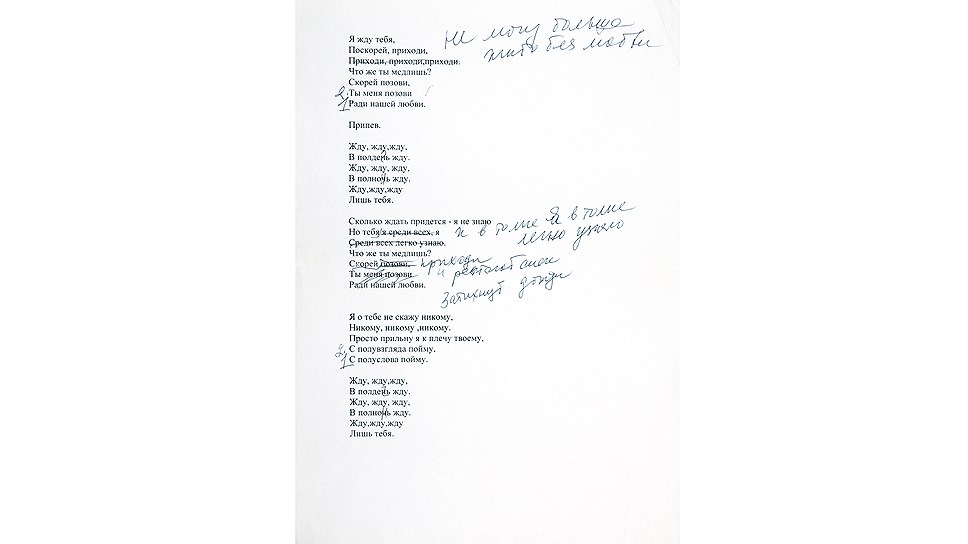 Я жду тебя,
Поскорей, приходи,
Приходи, приходи,приходи.
Не могу больше
жить без любви
Что же ты медлишь?
Скорей позови,
2 Ты меня позови
1 Ради нашей любви.
Припев.
Жду, жду,жду,
В полдень жду.
Жду, жду, жду,
В полночь жду.
Жду,жду,жду
Лишь тебя.
Сколько ждать придется - я не знаю
Но тебя я среди всех, я
и в толпе Я в толпе
Среди всех легко узнаю.
легко узнаю
Что же ты медлишь?
Скорей позови, приходи
Ты меня позови и
Ради нашей любви.
Затихнут дожди
Я о тебе не скажу никому,
Никому, никому ,никому.
Просто прильну я к плечу твоему,
2 С полувзгляда пойму,
1 С полуслова пойму.
Жду, жду,жду,
В полдень жду.
Жду, жду, жду,
В полночь жду.
Жду,жду,жду
Лишь тебя.